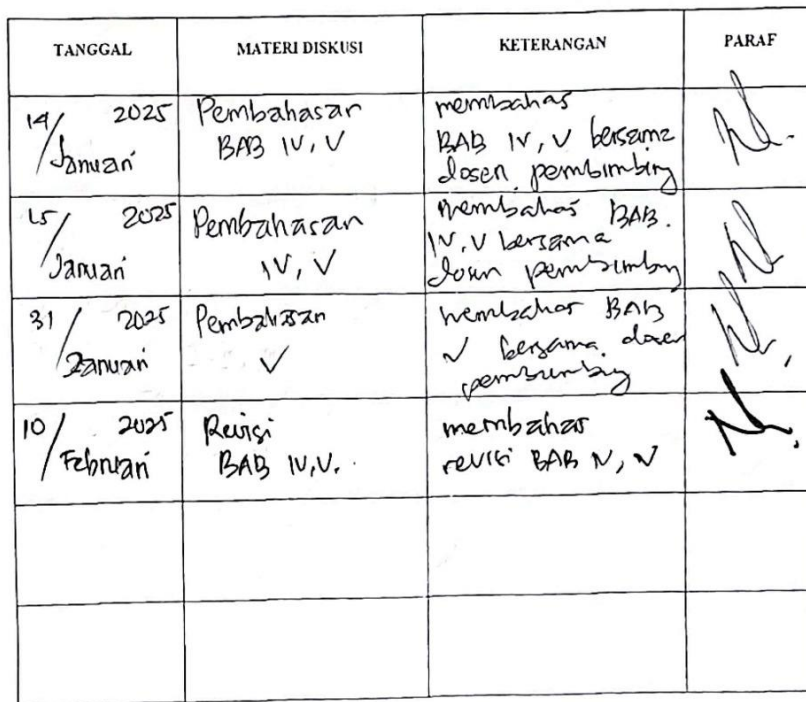 TANGGAL MATERI DISKUSI KETERANGAN PARAF
14/ 2025 Januari
Pembahasan
BAB IV, V
membahas
BAB IV, V bersama
dosen pembimbing
15/ 2025 Januari
Pembahasan
IV, V
membahas BAB.
IV, V bersama
dosen pembimbing
31/ 2025 Januari
Pembahasan
V
membahas BAB
V bersama dosen
pembimbing
10/ 2025 Februari
Revisi
BAB IV, V.
membahas
revisi BAB IV, V